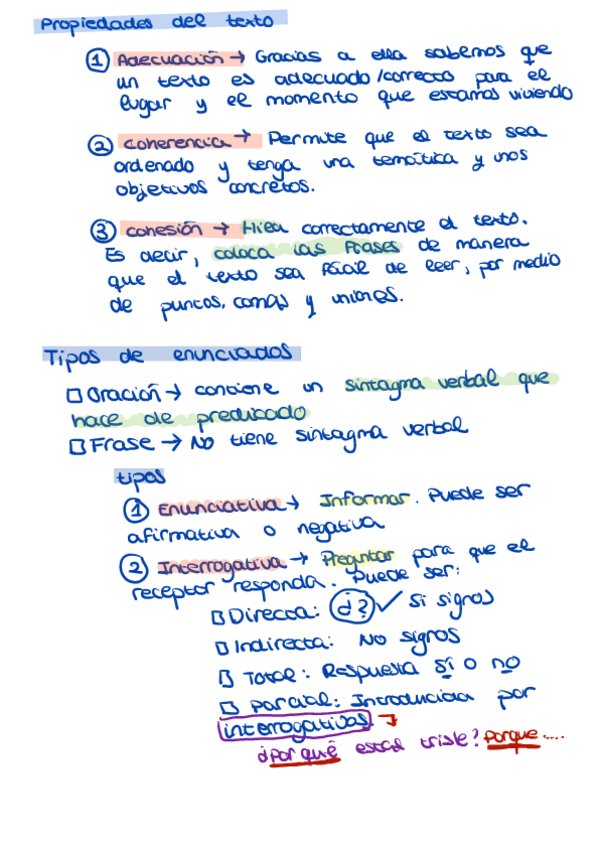 Propiedades del texto
① Adecuación → Gracias a ella sabemos que
un texto es adecuado/correcto para el
lugar y el momento que estamos viviendo
② Coherencia → Permite que el texto sea
ordenado y tenga una temática y unos
objetivos concretos.
③ Cohesión → Hila correctamente el texto.
Es decir, coloca las frases de manera
que el texto sea fácil de leer, por medio
de puntos, comas y uniones.
Tipos de enunciados
□ Oración → contiene un sintagma verbal que
hace de predicado
□ Frase → No tiene sintagma verbal
tipos
① Enunciativa → Informar. Puede ser
afirmativa o negativa
② Interrogativa → Preguntar para que el
receptor responda. Puede ser:
□ Directa: ¿? ✓ Si signos
□ Indirecta: No signos
□ Total: Respuesta sí o no
□ Parcial: Introducida por
interrogativos. →
¿Por qué estás triste? Porque.....